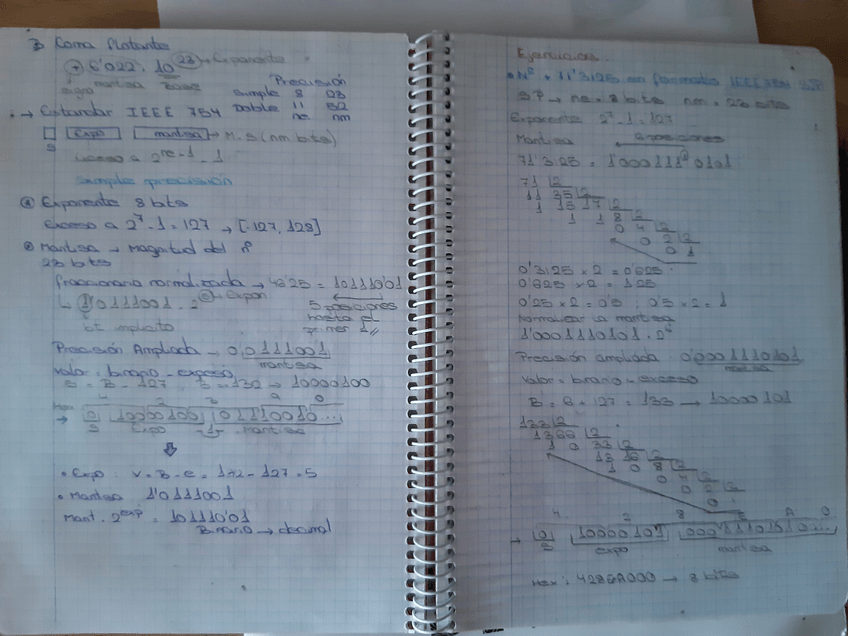 3 Coma flotante
+ 6'022 · 10 23 → Exponente
signo mantisa Base
Precisión
Simple 8 23
Doble 11 52
ne nm
→ Estandar IEEE 754
S Expo mantisa → M.S (nm bits)
exceso a 2ⁿᵉ⁻¹ - 1
Simple precisión
Exponente 8 bits
Exceso a 2⁷-1 = 127 → [-127, 128]
Mantisa → Magnitud del nº
23 bits
fraccionaria normalizada → 46'25 = 101110'01
↳ 1'0111001 · 2 → Expon
bit implicito
5 posiciones
hasta el
primer 1
Precisión Ampliada → 0,0111001
mantisa
Valor = binario - exceso
→ 10000100
Hex
→ 0 10000100 01110010...
S Expo mantisa
• Expo: V = B - e = 132 - 127 = 5
• Mantisa 1'0111001
Mant. 2ᵉˣᵖ = 101110'01
Binario → decimal
Ejercicios
• Nº + 71'3125 en formato IEEE 754 SP
SP → ne = 8 bits nm = 23 bits
Exponente 2⁷-1 = 127
Mantisa 6 posiciones
71'3125 = 1000111'0101
71 2
11 35 2
1 15 17 2
1 1 8 2
0 4 2
0 2 2
0 1
0'3125 × 2 = 0'625
0'625 × 2 = 1'25
0'25 × 2 = 0'5 0'5 × 2 = 1
Normalizar la mantisa
1'0001110101 · 2⁶
Precisión ampliada 0'0001110101
mantisa
Valor = binario - exceso
B = 6 + 127 = 133 → 10000101
133 2
13 66 2
1 0 33 2
13 16 2
1 0 8 2
0 4 2
0 2 2
0
4 2 8 E A 0
→ 0 10000101 00011101010...
S expo mantisa
Hex: 428EA000 → 8 bits